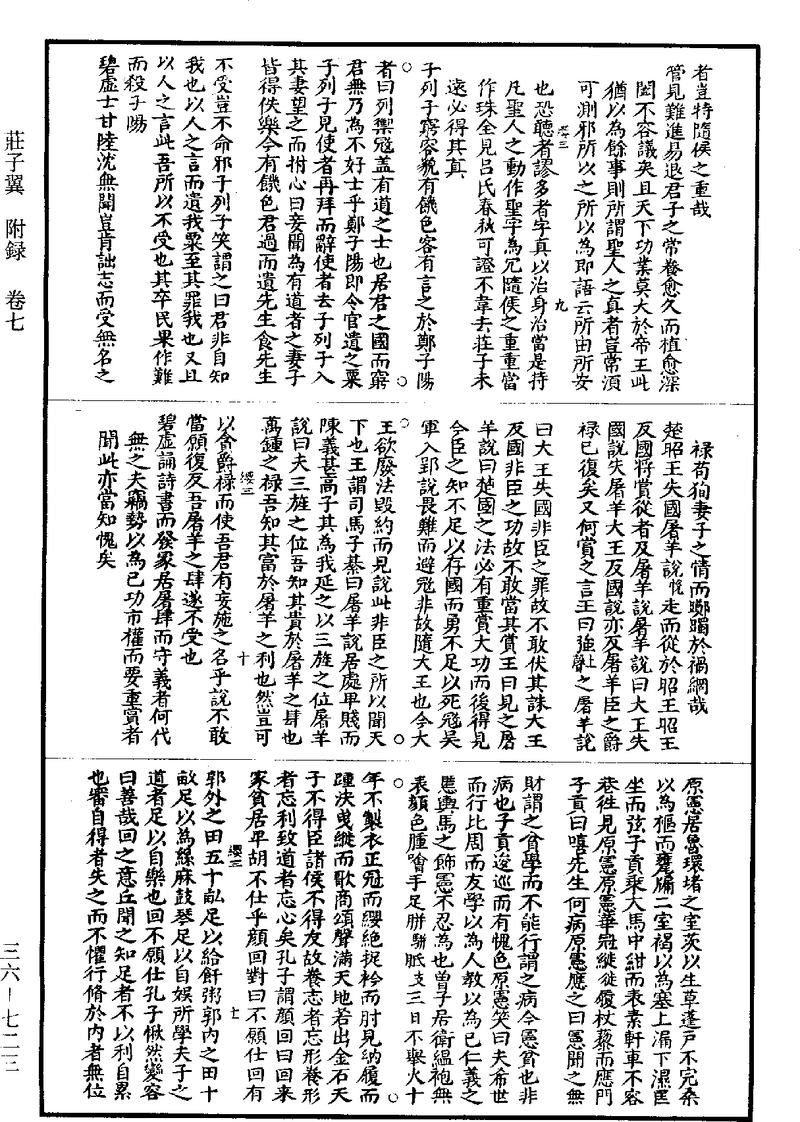 者豈特隨侯之重哉
管見難進易退君子之常養愈久而植愈深
固不容議矣且天下功業莫大於帝王此
猶以為餘事則所謂聖人之真者豈常湏
可測邪所以之所以為即語云所由所安
纓三
九
也恐聽者謬多者字真以治身治當是持
凡聖人之動作聖字為冗隨侯之重重當
作珠全見呂氏春秋可證不韋去莊子未
遠必得其真
子列子窮容貌有饑色客有言之於鄭子陽
者曰列禦寇蓋有道之士也居君之國而窮
君無乃為不好士乎鄭子陽即令官遺之粟
子列子見使者再拜而辭使者去子列子入
其妻望之而拊心曰妾聞為有道者之妻子
皆得佚樂今有饑色君過而遺先生食先生
不受豈不命邪子列子笑謂之曰君非自知
我也以人之言而遺我粟至其罪我也又且
以人之言此吾所以不受也其卒民果作難
而殺子陽
碧虛士甘陸沈無聞豈肯詘志而受無名之
祿苟狥妻子之情而躑躅於禍網哉
楚昭王失國屠羊說悅走而從於昭王昭王
反國將賞從者及屠羊說屠羊說曰大王失
國說失屠羊大王反國說亦反屠羊臣之爵
祿已復矣又何賞之言王曰強上聲之屠羊說
曰大王失國非臣之罪故不敢伏其誅大王
反國非臣之功故不敢當其賞王曰見之屠
羊說曰楚國之法必有重賞大功而後得見
今臣之知不足以存國而勇不足以死寇吳
軍入郢說畏難而避寇非故隨大王也今大
王欲廢法毀約而見說此非臣之所以聞天
下也王謂司馬子綦曰屠羊說居處卑賤而
陳義甚高子其為我延之以三旌之位屠羊
說曰夫三旌之位吾知其貴於屠羊之肆也
萬鍾之祿吾知其富於屠羊之利也然豈可
纓三
十
以貪爵祿而使吾君有妄施之名乎說不敢
當願復反吾屠羊之肆遂不受也
碧虛誦詩書而發冢居屠肆而守義者何代
無之夫竊勢以為己功市權而要重賞者
聞此亦當知愧矣
原憲居魯環堵之室茨以生草蓬戶不完桑
以為樞而甕牖二室褐以為塞上漏下濕匡
坐而弦子貢乘大馬中紺而表素軒車不容
巷往見原憲原憲華冠縰縰履杖藜而應門
子貢曰嘻先生何病原憲應之曰憲聞之無
財謂之貧學而不能行謂之病今憲貧也非
病也子貢逡巡而有愧色原憲笑曰夫希世
而行比周而友學以為人教以為己仁義之
慝輿馬之飾憲不忍為也曾子居衛縕袍無
表顏色腫噲手足胼胝支三日不舉火十
年不製衣正冠而纓絕捉衿而肘見納履而
踵決曳縰而歌商頌聲滿天地若出金石天
子不得臣諸侯不得友故養志者忘形養形
者忘利致道者忘心矣孔子謂顏回曰回來
家貧居卑胡不仕乎顏回對曰不願仕回有
纓三
七
郭外之田五十畝足以給飦粥郭內之田十
畝足以為絲麻鼓琴足以自娛所學夫子之
道者足以自樂也回不願仕孔子愀然變容
曰善哉回之意丘聞之知足者不以利自累
也審自得者失之而不懼行脩於內者無位
莊子翼 附録 卷七
三六-七二三